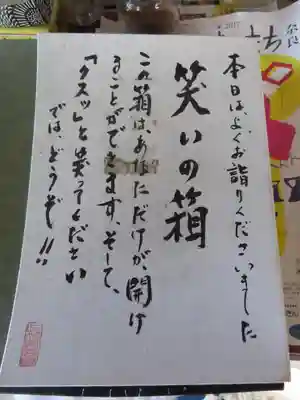 本日は、よくお詣りくださいました
笑いの箱
この箱は、あなただけが、開け
ることができます。そして、
「クスッ」と笑ってください
では、どうぞ!!
2017
奈良